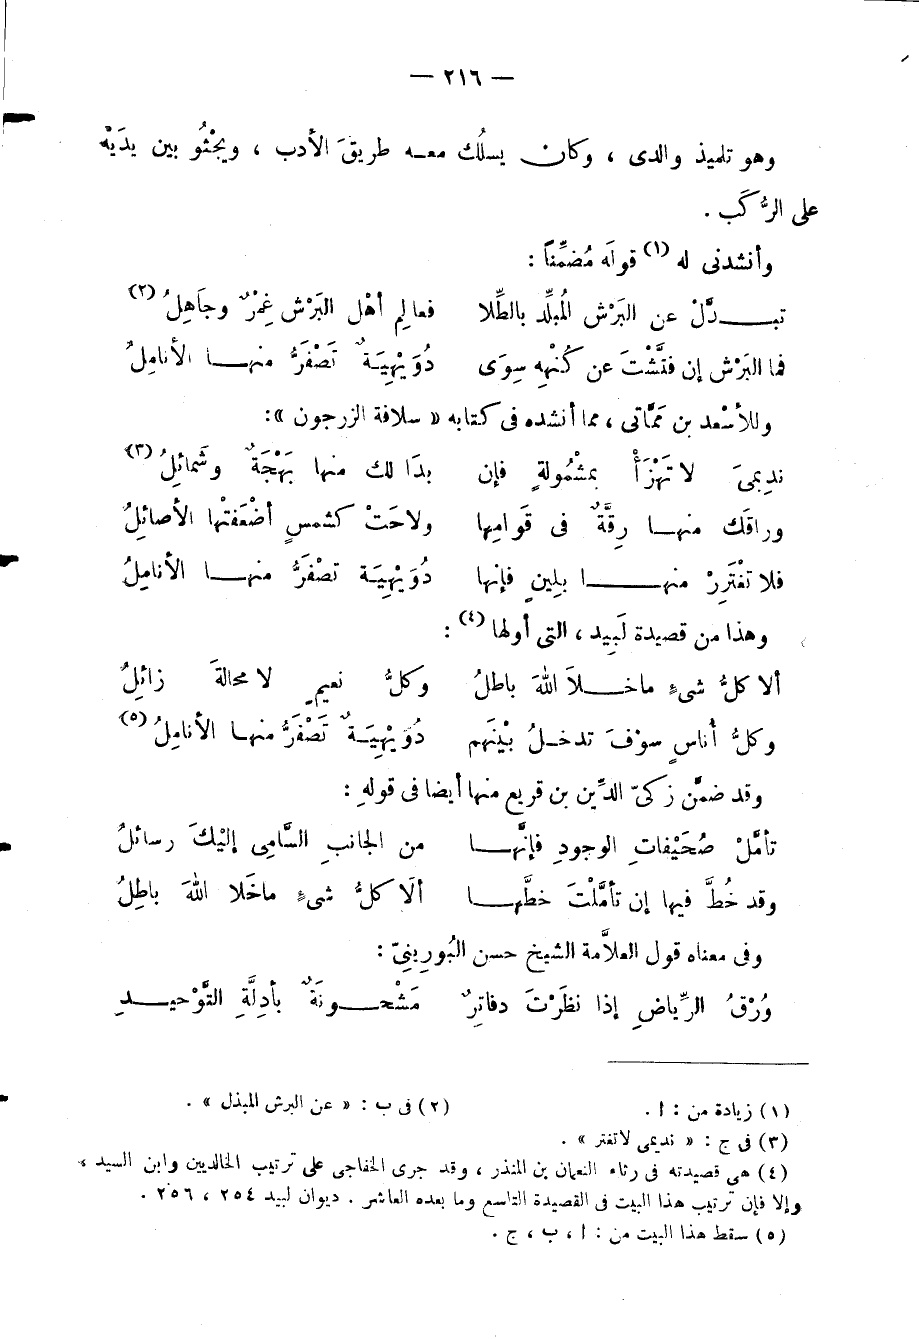 — ٢١٦ —
وهو تلميذ والدى ، وكان يسلُك معه طريقَ الأدب ، ويجْثُو بين يدَيْه
على الرُّكَب .
وأنشدنى له (١) قولَه مُضمِّناً :
تبدَّلْ عن البَرْش المُبلِّد بالطِّلا فعالِم أهْل البَرْش غِمْرٌ وجاَهِلُ (٢)
فما البَرْش إن فتَّشْتَ عن كُنْهِه سِوَى دُوَيْهِيَةٌ تَصْفَرُّ منها الأنامِلُ
وللأسْعد بن مَمَّاتى ، مما أنشده فى كتابه « سلافة الزرجون » :
ندِيمىَ لا تَهْزَأْ بمشْمُولةٍ فإن بدَا لك منها بَهْجَةٌ وشَمائلُ (٣)
وراقَك منها رِقَّةٌ فى قَوامِها ولاحَتْ كشمسٍ أضْعَفتْها الأصائلُ
فلا تغْتَرِرْ منها بلِينٍ فإنها دُوَيْهِيَة تصْفَرُّ منها الأنامِلُ
وهذا من قصيدة لَبِيد ، التى أولها (٤) :
ألا كلُّ شىءٍ ماخلاَ اللهَ باطلُ وكلُّ نعيمٍ لا محالةَ زائِلُ
وكلُّ أُناسٍ سوْفَ تدخلُ بيْنَهم دُوَيْهِيَةٌ تَصْفَرُّ منها الأنامِلُ (٥)
وقد ضمَّن زكىّ الدِّين بن قريع منها أيضا فى قولهِ :
تأمَّلْ صُحَيْفاتِ الوجودِ فإنَّها من الجانبِ السَّامِى إليْكَ رسائلُ
وقد خُطَّ فيها إن تأمَّلْتَ خطَّها ألَا كلُّ شىءٍ ماخَلا اللهَ باطِلُ
وفى معناه قول العلاَّمة الشيخ حسن البُورِينىّ :
وُرْقُ الرِّياضِ إذا نظَرْتَ دفاتِرٌ مَشْحونَةٌ بأدِلَّةِ التَّوْحيدِ
(١) زيادة من : ا . (٢) فى ب : « عن البرش المبذل » .
(٣) فى ج : « نديمى لا تغتر » .
(٤) هى قصيدته فى رثاء النعمان بن المنذر ، وقد جرى الخفاجى على ترتيب الخالديين وابن السيد ،
وإلا فإن ترتيب هذا البيت فى القصيدة التاسع وما بعده العاشر . ديوان لبيد ٢٥٤ ، ٢٥٦ .
(٥) سقط هذا البيت من : ا ، ب ، ج .